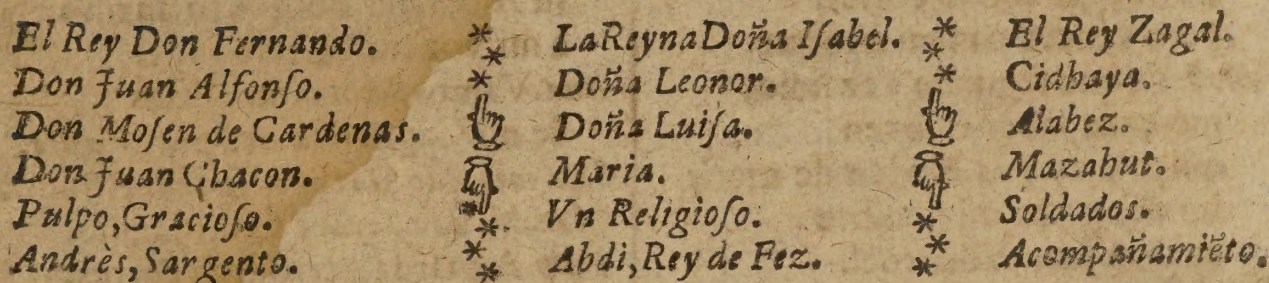 El Rey Don Fernando.
Don Juan Alfonſo.
Don Moſen de Cardenas.
Don Juan Chacon.
Pulpo, Gracioſo.
Andrès, Sargento.
La Reyna Doña Iſabel.
Doña Leonor.
Doña Luiſa.
Maria.
Vn Religioſo.
Abdi, Rey de Fez.
El Rey Zagal.
Cidhaya.
Alabez.
Mazahut.
Soldados.
Acompañamiẽto.